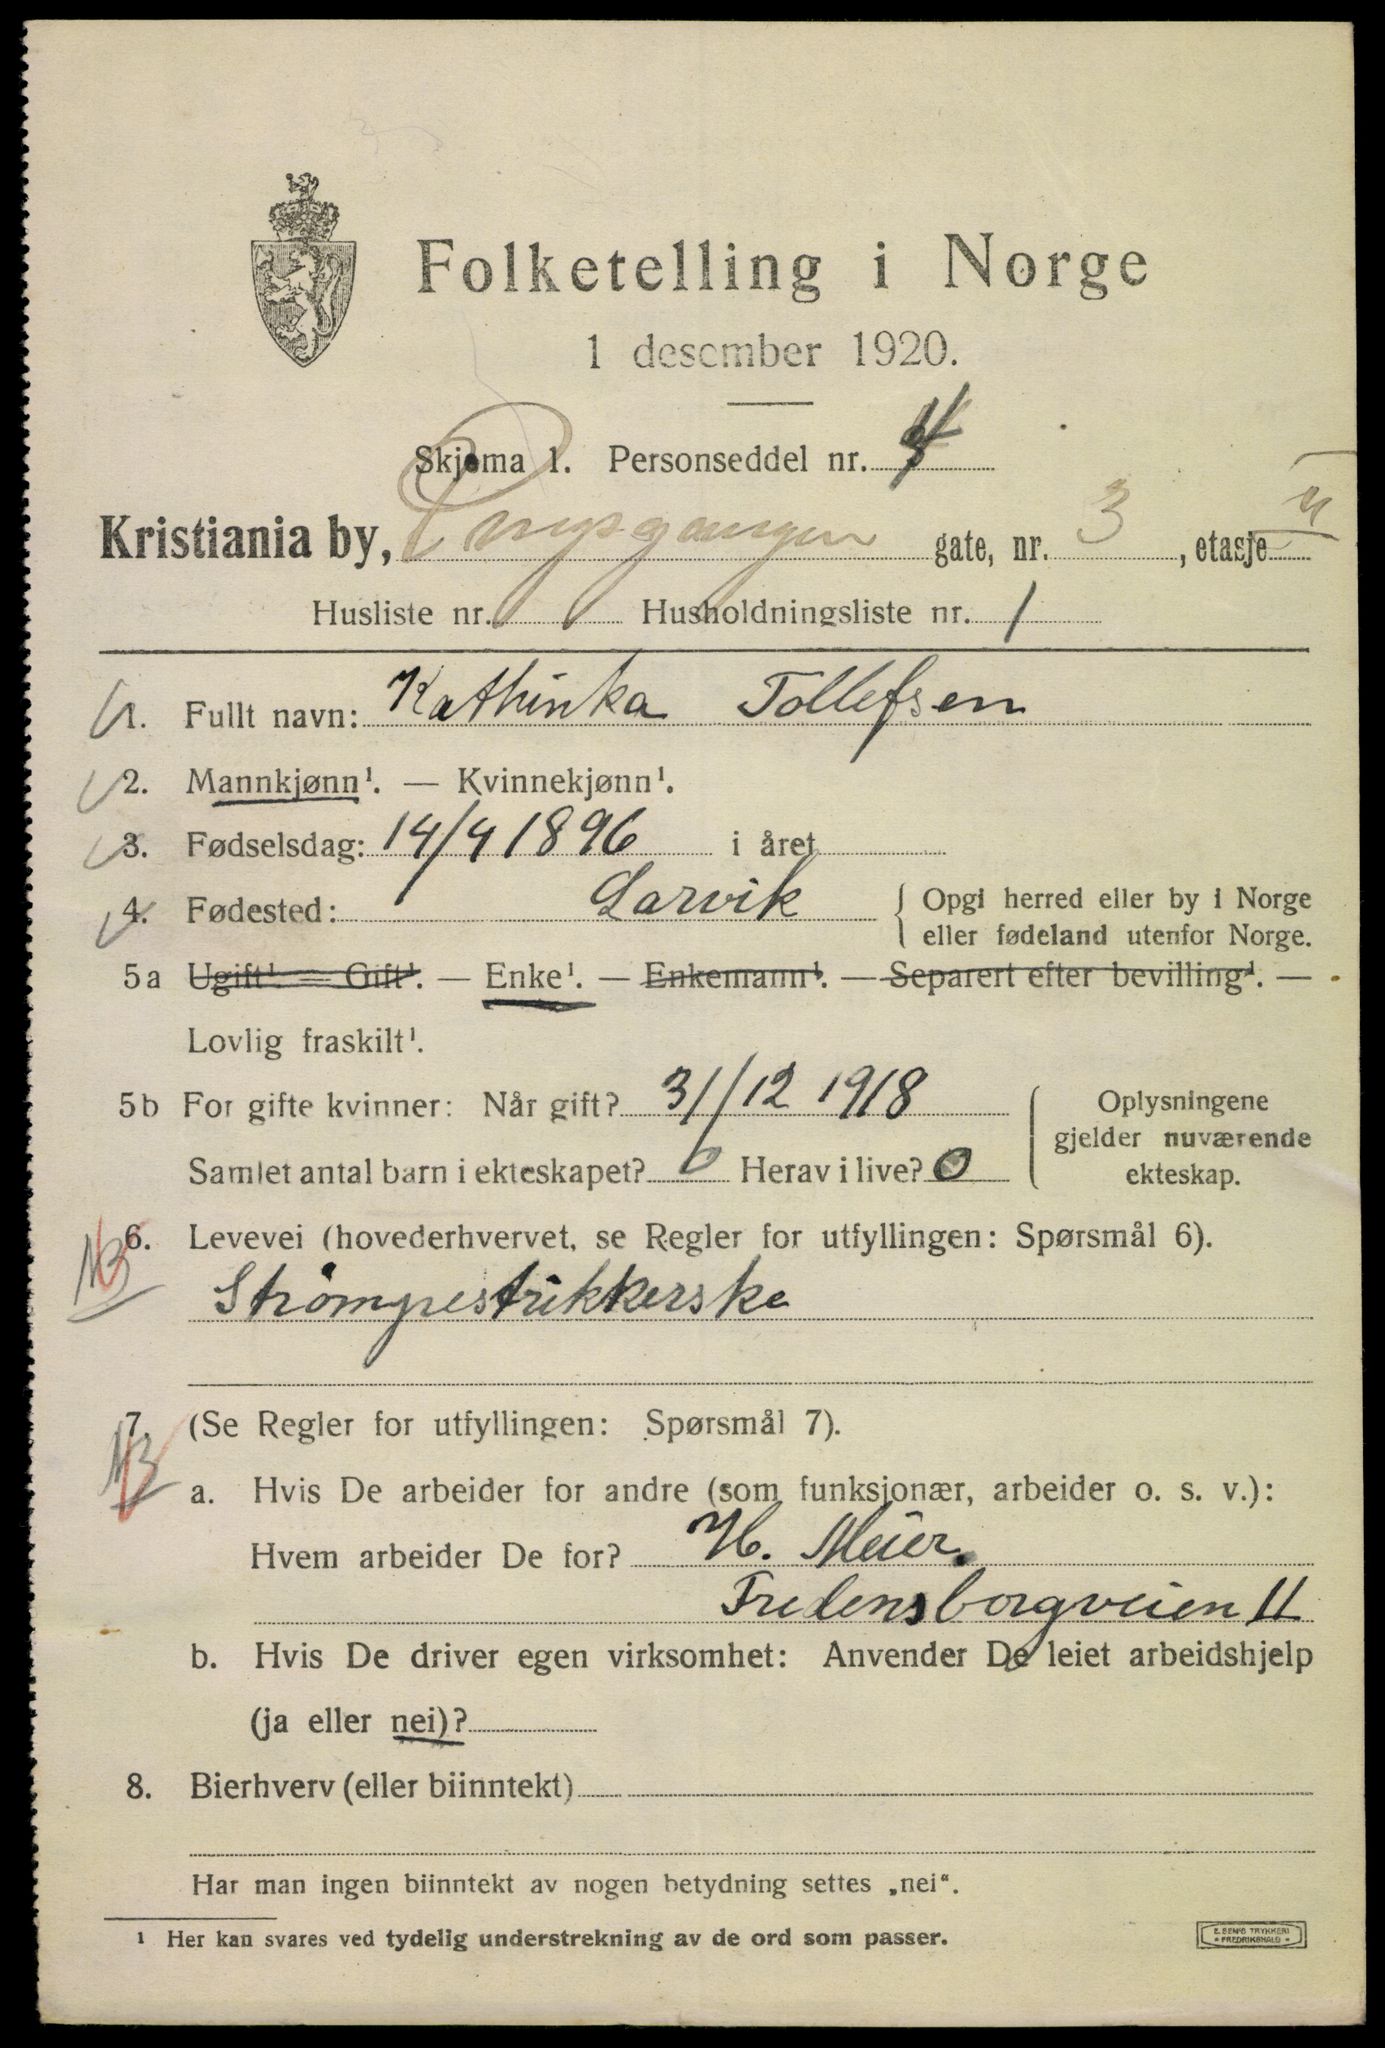 Folketelling i Norge
1 desember 1920.
Skjema 1. Personseddel nr. 4
Kristiania by, gate, nr. 3, etasje
Husliste nr. Husholdningsliste nr. 1
1. Fullt navn: Kathinka Tollefsen
2. Mannkjønn¹. — Kvinnekjønn¹.
3. Fødselsdag: 14/4 1896 i året
4. Fødested: Larvik { Opgi herred eller by i Norge
eller fødeland utenfor Norge.
5a Ugift¹. — Gift¹. — Enke¹. — Enkemann¹. — Separert efter bevilling¹. —
Lovlig fraskilt¹.
5b For gifte kvinner: Når gift? 31/12 1918
Samlet antal barn i ekteskapet? 0 Herav i live? 0
Oplysningene
gjelder nuværende
ekteskap.
NB 6. Levevei (hovederhvervet, se Regler for utfyllingen: Spørsmål 6).
Strømpestrikkerske
NB 7. (Se Regler for utfyllingen: Spørsmål 7).
a. Hvis De arbeider for andre (som funksjonær, arbeider o. s. v.):
Hvem arbeider De for? H. Meier.
Fredensborgveien 11
b. Hvis De driver egen virksomhet: Anvender De leiet arbeidshjelp
(ja eller nei)?
8. Bierhverv (eller biinntekt)
Har man ingen biinntekt av nogen betydning settes „nei“.
¹ Her kan svares ved tydelig understrekning av de ord som passer.
E. SEM'S TRYKKERI
FREDRIKSHALD